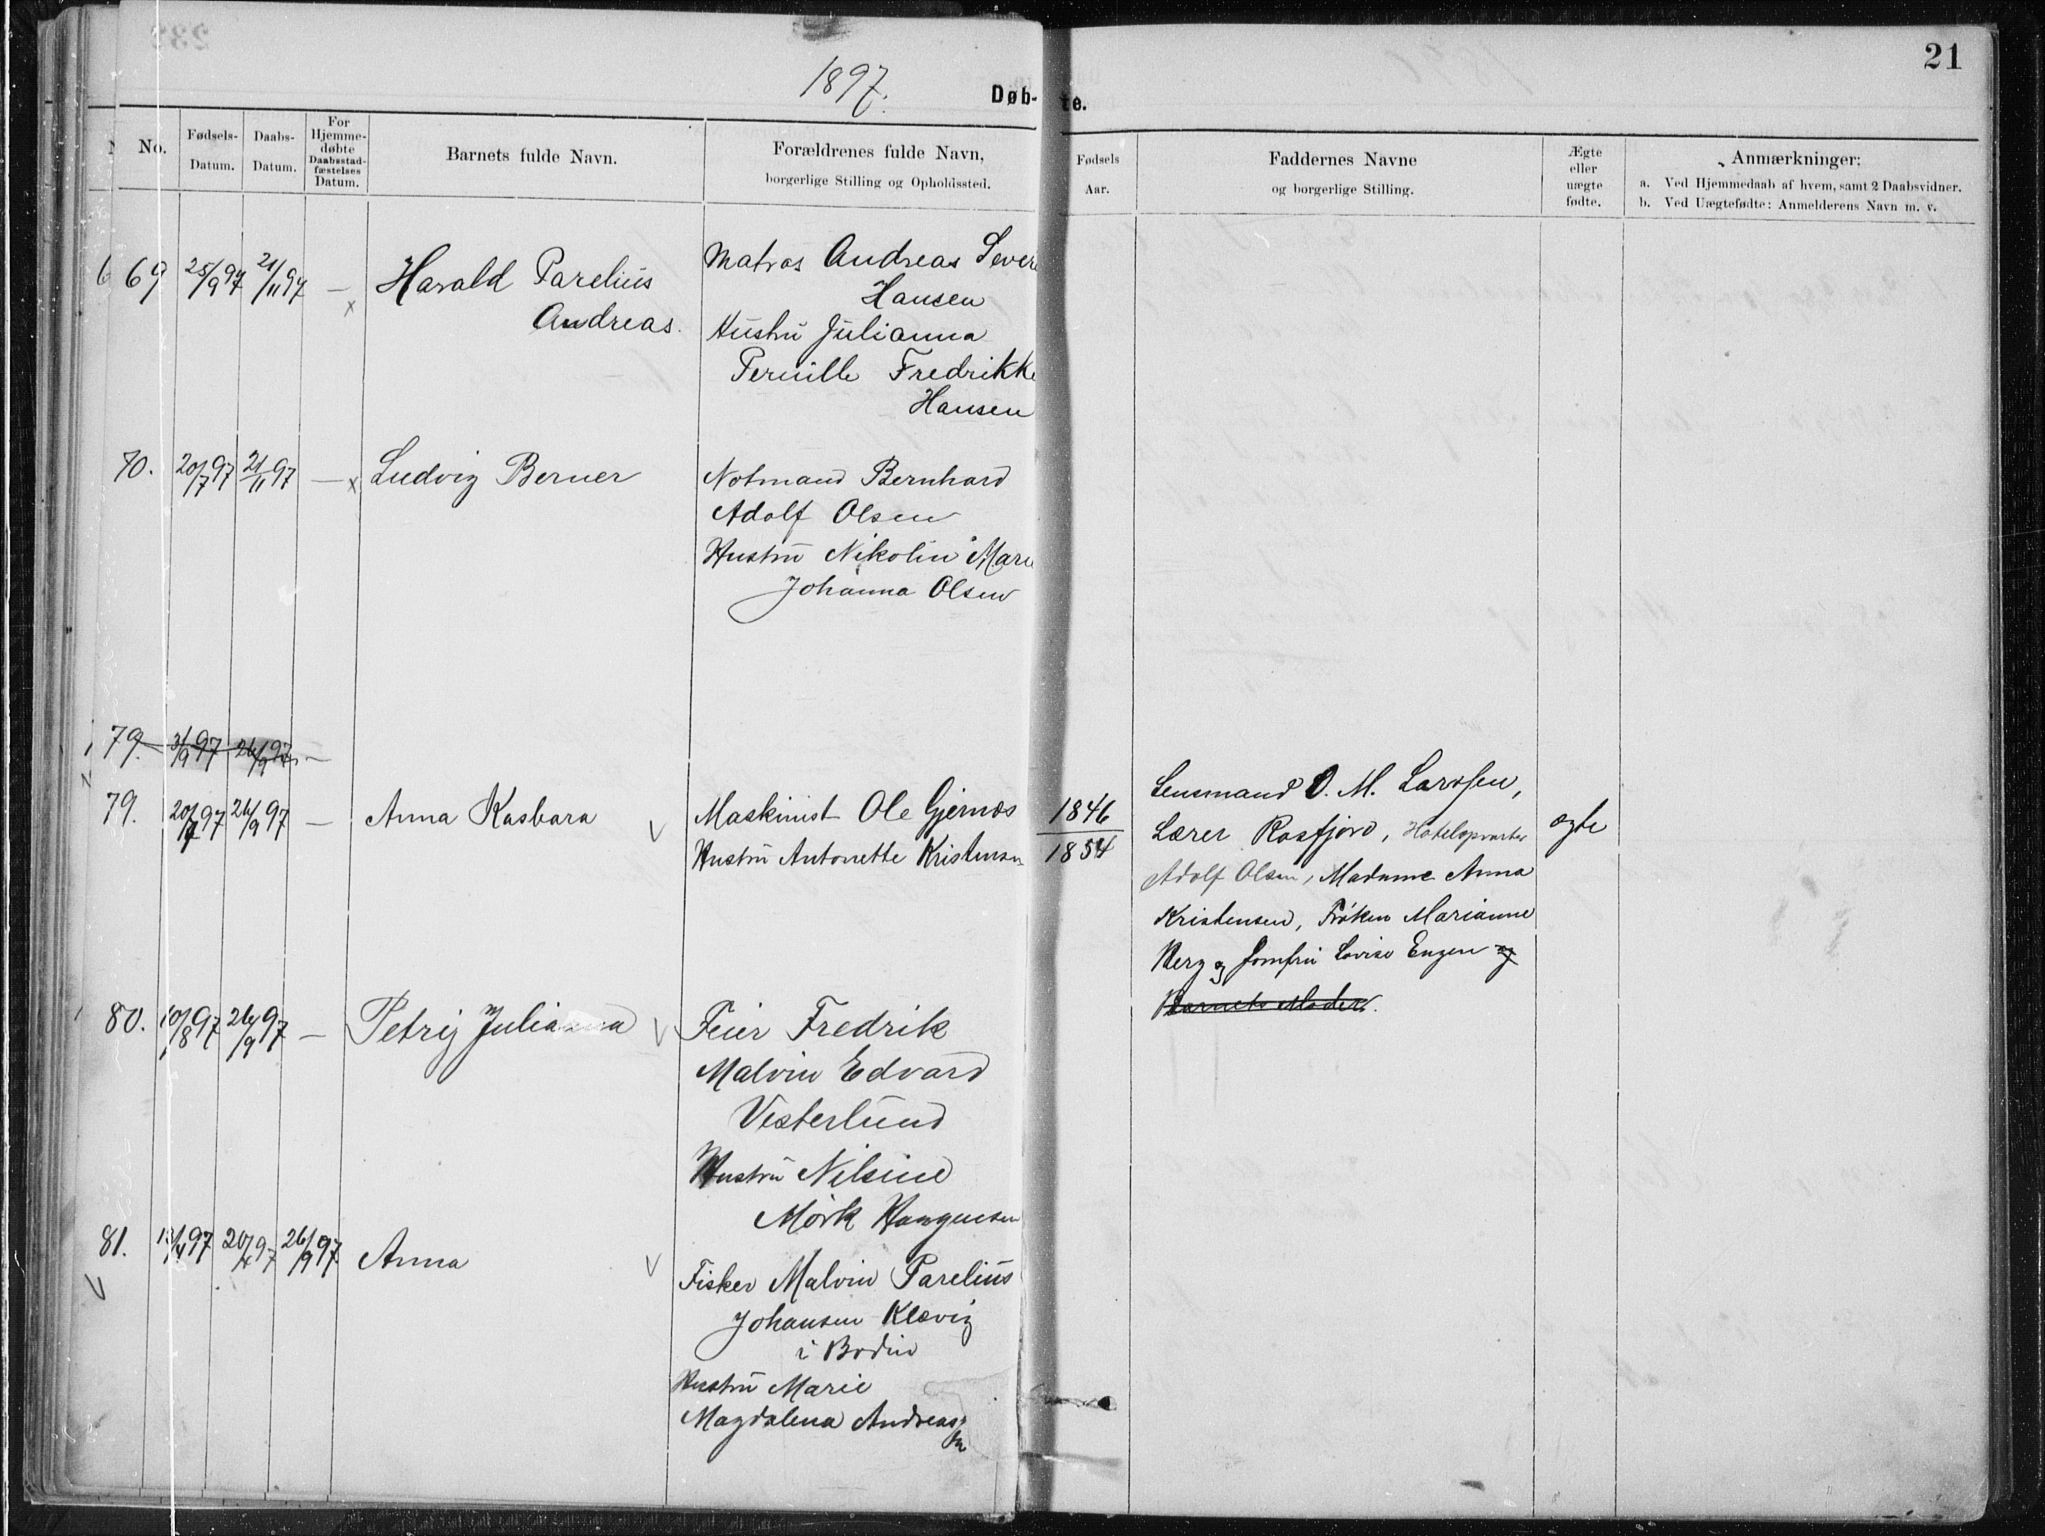 1897.
21
Døb- te.
No.
Fødsels-
Datum.
Daabs-
Datum.
For
Hjemme-
døbte
Daabsstad-
fæstelses
Datum.
Barnets fulde Navn.
Forældrenes fulde Navn,
borgerlige Stilling og Opholdssted.
Fødsels
Aar.
Faddernes Navne
og borgerlige Stilling.
Ægte
eller
uægte
fødte.
Anmærkninger:
a. Ved Hjemmedaab af hvem, samt 2 Daabsvidner.
b. Ved Uægtefødte: Anmelderens Navn m. v.
69 25/9 97 21/11 97 — x Harald Parelius
Andreas.
Matros Andreas Sever
Hansen
Hustru Julianna
Pernille Fredrikke
Hansen
70. 20/7 97 21/11 97 — x Ludvig Berner
Notmand Bernhard
Adolf Olsen
Hustru Nikolin Marie
Johanna Olsen
79. 31/9 97 26/9 97 —
79. 20/7 97 26/9 97 — Anna Kasbara v
Maskinist Ole Gjernæs
Hustru Antonette Kristensen
1846
1854
Lensmand O. M. Larssen,
Lærer Rosfjord, Hotelopvarter
Adolf Olsen, Madame Anna
Kristensen, Frøken Marianne
Berg og Jomfru Lovise Engen og
Barnets Moder.
ægte
80. 10/8 97 26/9 97 — Petrij Julianna v
Feier Fredrik
Malvin Edvard
Vesterlund
Hustru Nilsine
Mørk Haagensen
81. 13/4 97 20/4 97 26/9 97 Anna v
Fisker Malvin Parelius
Johansen Klævig
i Bodin
Hustru Marie
Magdalena Andreas-